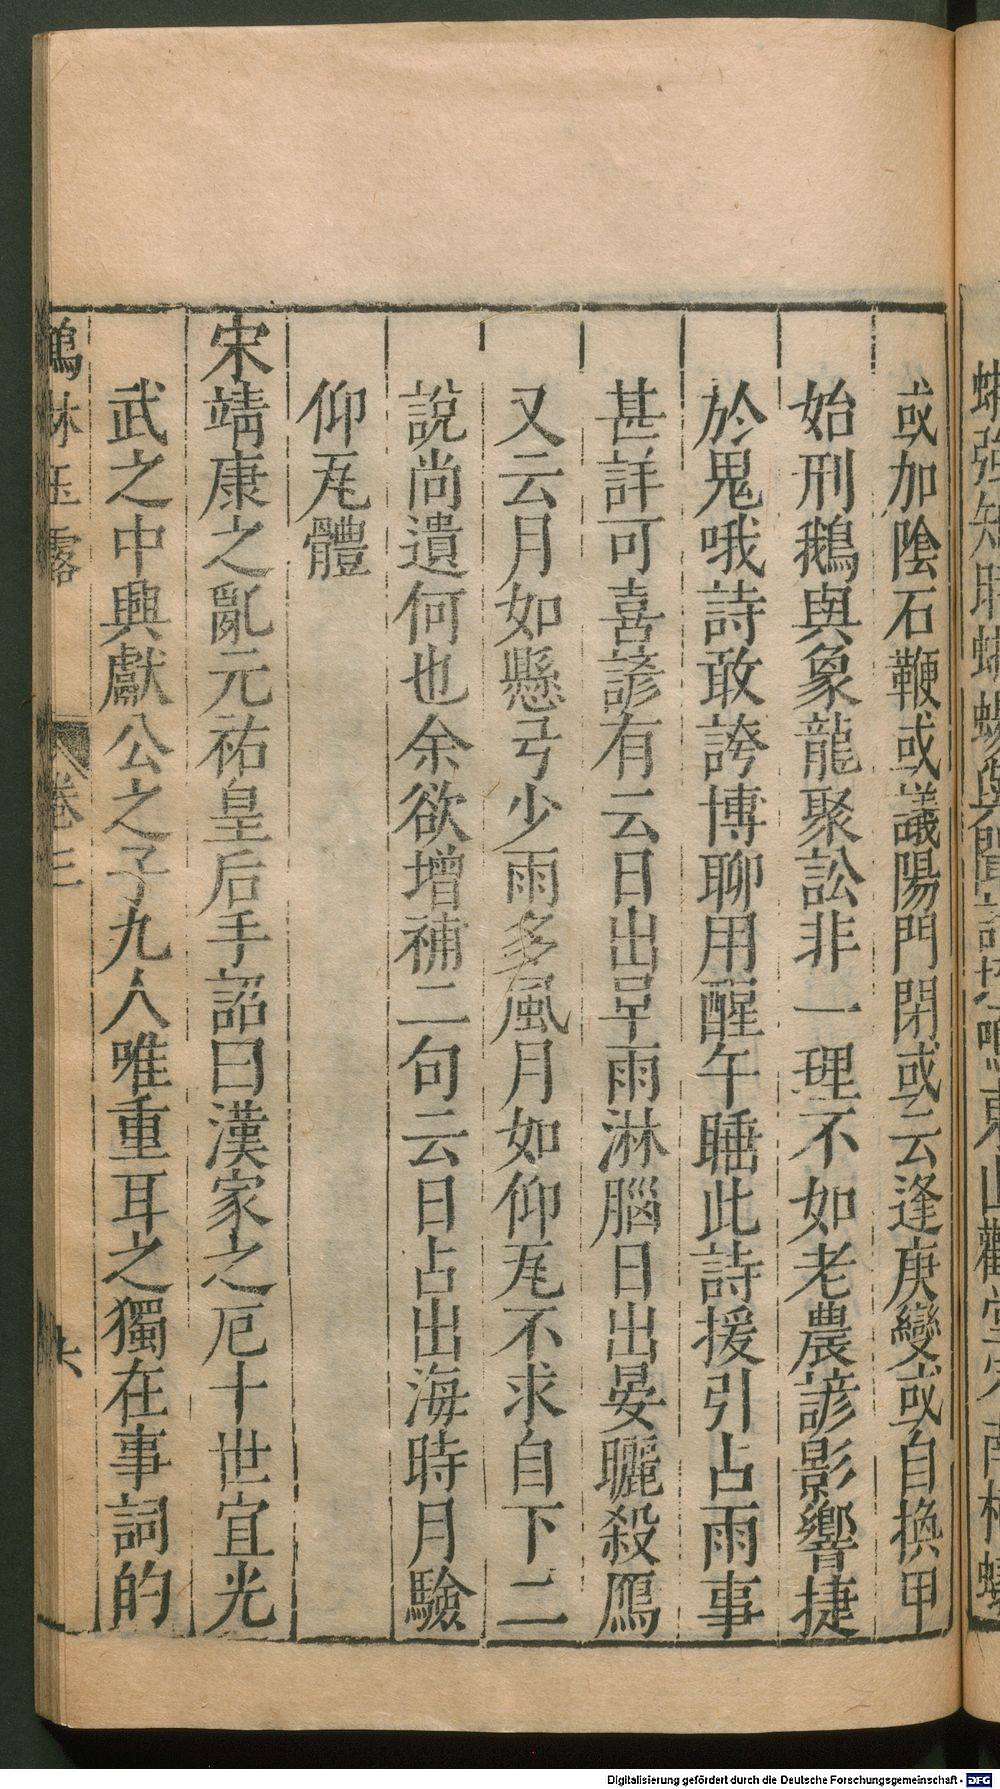 或加陰石鞭或議陽門閉或云逢庚變或自換甲
始刑鵝與象龍聚訟非一理不如老農諺影響捷
於鬼哦詩敢誇博聊用醒午睡此詩援引占雨事
甚詳可喜諺有云日出早雨淋腦日出晏曬殺鴈
又云月如懸弓少雨多風月如仰瓦不求自下二
說尚遺何也余欲增補二句云日占出海時月驗
仰瓦體
宋靖康之亂元祐皇后手詔曰漢家之厄十世宜光
武之中興獻公之子九人唯重耳之獨在事詞的
鶴林玉露 卷三 六
Digitalisierung gefördert durch die Deutsche Forschungsgemeinschaft - DFG